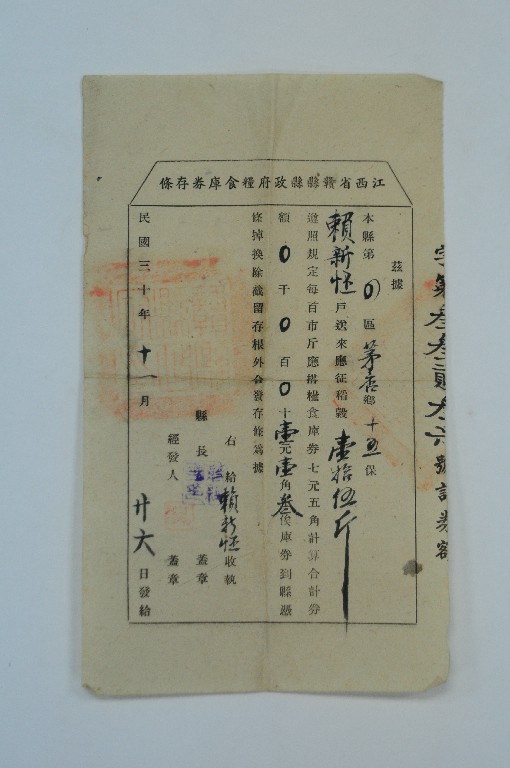 江西省贛縣縣政府糧食庫券存條
茲據
本縣第0區茅店鄉十五保
賴新恆戶送來應征稻穀壹拾伍斤
遵照規定每百市斤應搭糧食庫券七元五角計算合計券
額0千0百0十壹元壹角叁 庫券到縣憑
條掉換除截留存根外合發存條為據
右給賴新恆收執
縣長 蓋章
經發人 蓋章
民國三十年十一月廿六日發給
字第 號計券額